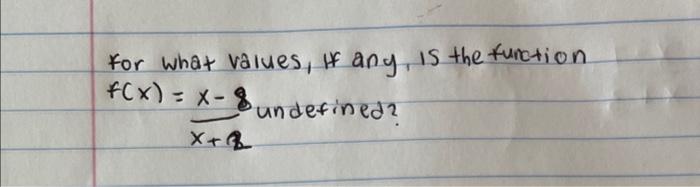 for what values, if any, is the function
f(x) = x - 8 undefined?
x +